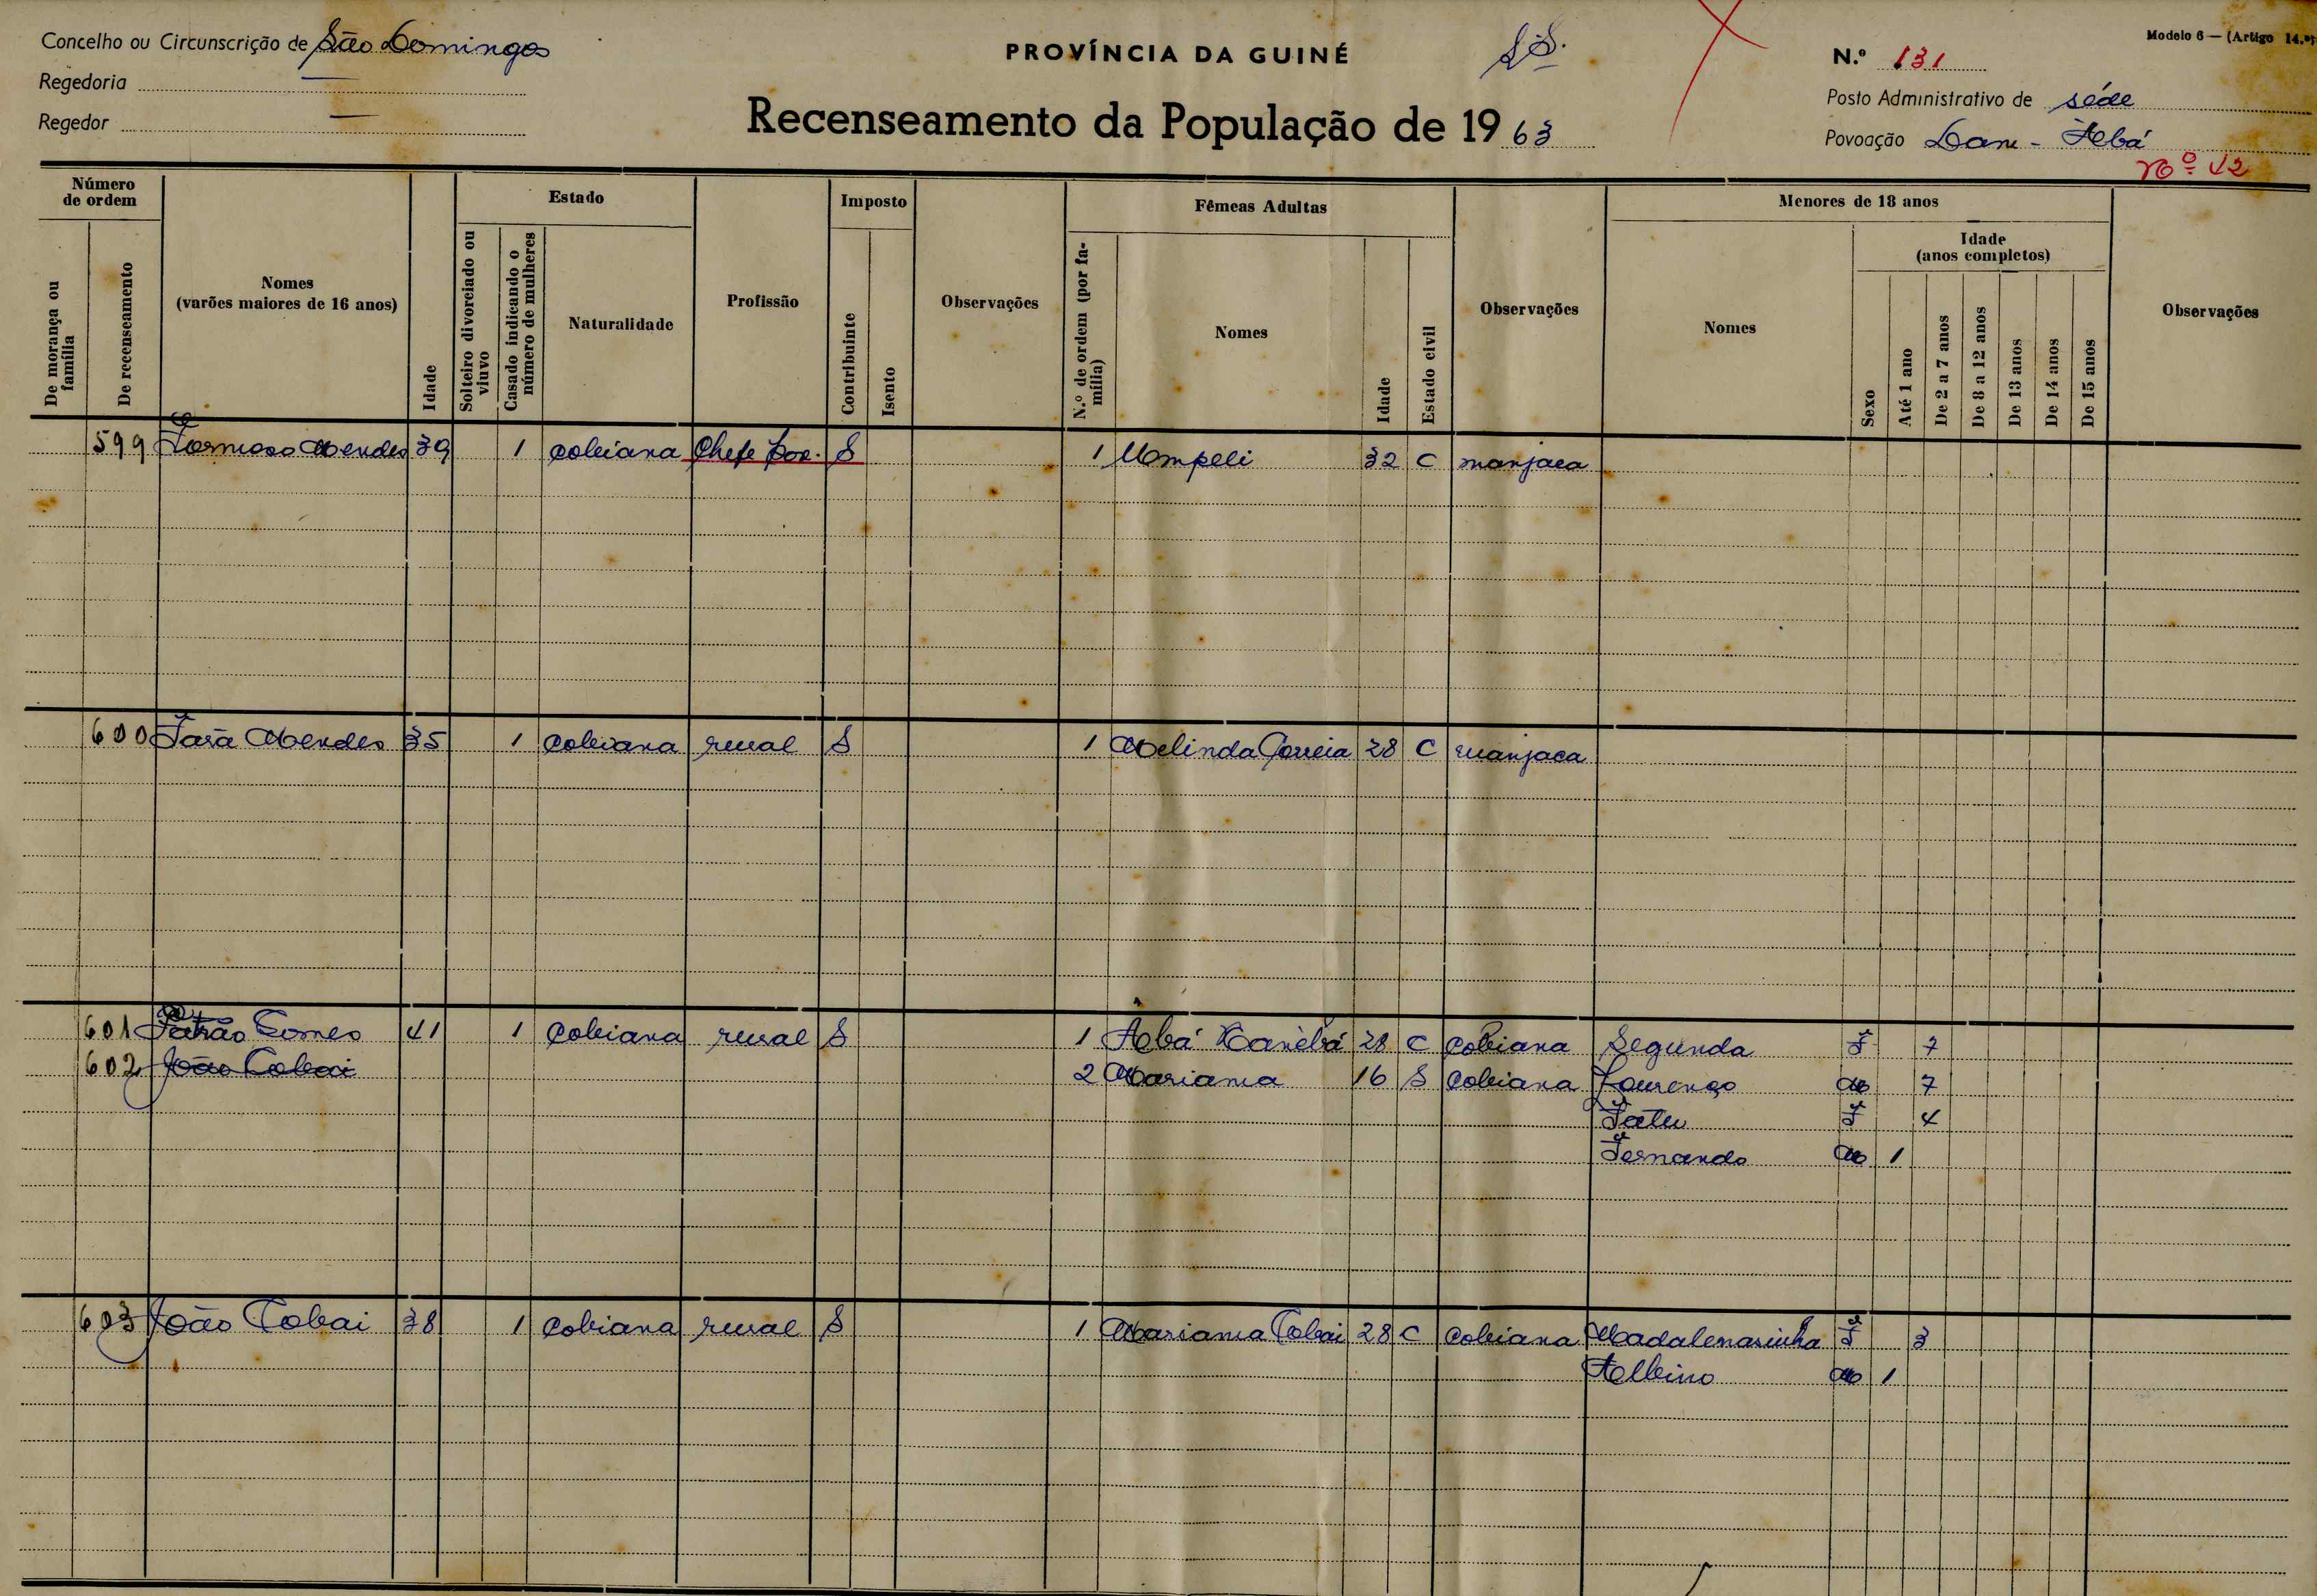 Concelho ou Circunscrição de São Domingos
Regedoria —
Regedor —
PROVÍNCIA DA GUINÉ
Recenseamento da População de 1963
Modelo 6 — (Artigo 14.º)
N.º 131
Posto Administrativo de séde
Povoação
Nº 42
Número de ordem
De morança ou família
De recenseamento
Nomes
(varões maiores de 16 anos)
Idade
Estado
Solteiro divorciado ou viuvo
Casado indicando o número de mulheres
Naturalidade
Profissão
Imposto
Contribuinte
Isento
Observações
Fêmeas Adultas
N.º de ordem (por família)
Nomes
Idade
Estado civil
Observações
Menores de 18 anos
Nomes
Sexo
Idade
(anos completos)
Até 1 ano
De 2 a 7 anos
De 8 a 12 anos
De 13 anos
De 14 anos
De 15 anos
Observações
599 Formoso Mendes 39 1 cobiana Chefe Pov. S 1 Mompeli 32 C manjaca
600 Mendes 35 1 cobiana rural S 1 Melinda Correia 28 C manjaca
601 Patrão Gomes 41 1 cobiana rural S 1 28 C cobiana Segunda F 7
602 João Cobai 2 Mariama 16 S cobiana Lourenço M 7
Fatu F 4
Fernando M 1
603 João Cobai 38 1 cobiana rural S 1 Mariama Cobai 28 C cobiana Madalenarinha F 3
Albino M 1